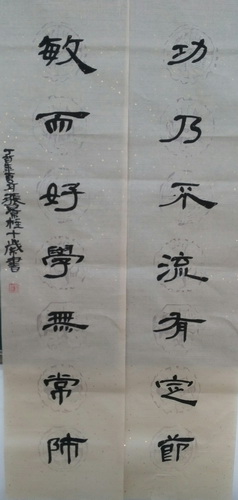 功乃不流有定節
敏而好學無常師
丁酉年 張 十歲書